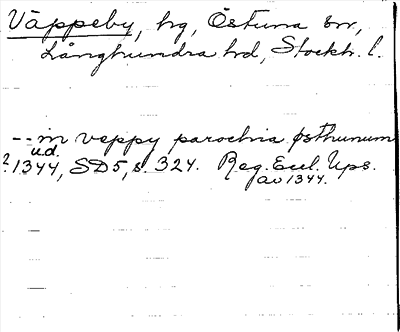 Väppeby, hg, Östuna sn,
Långhundra hd, Stockh. l.
--m veppy parochia østhunum
u.d.
? 1344, SD5, s. 324. Reg. Eccl. Ups.
av 1344.